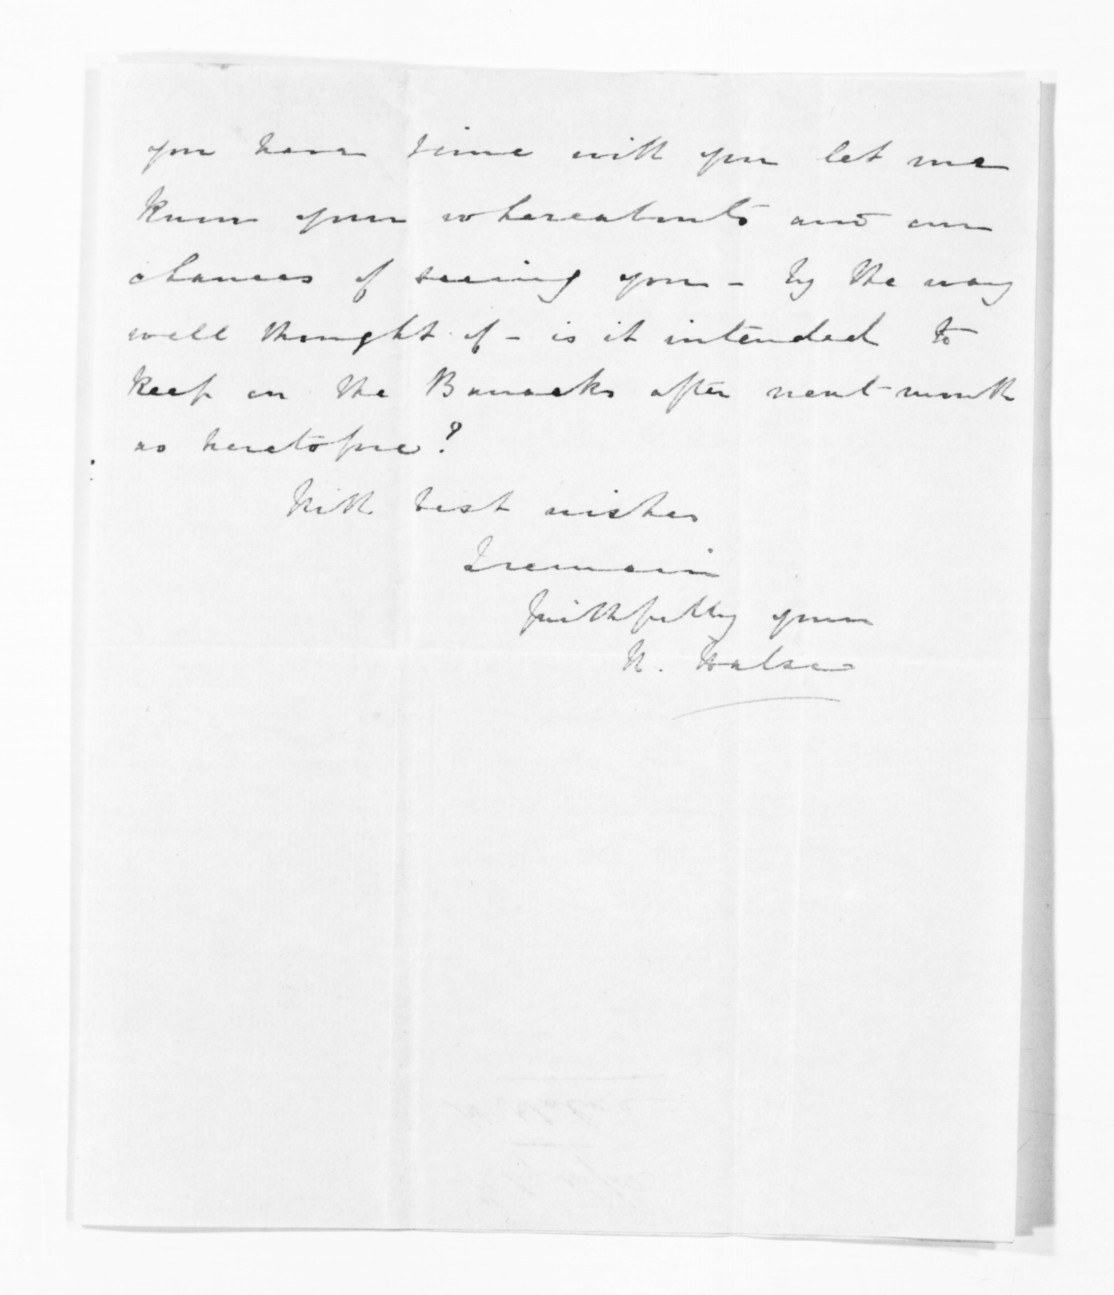 you have time will you let me
know your whereabouts and our
chances of seeing you - by the way
well thought of - is it intended to
keep on the Barracks after next month
as heretofore?
With best wishes
I remain
faithfully yours
H. Halse